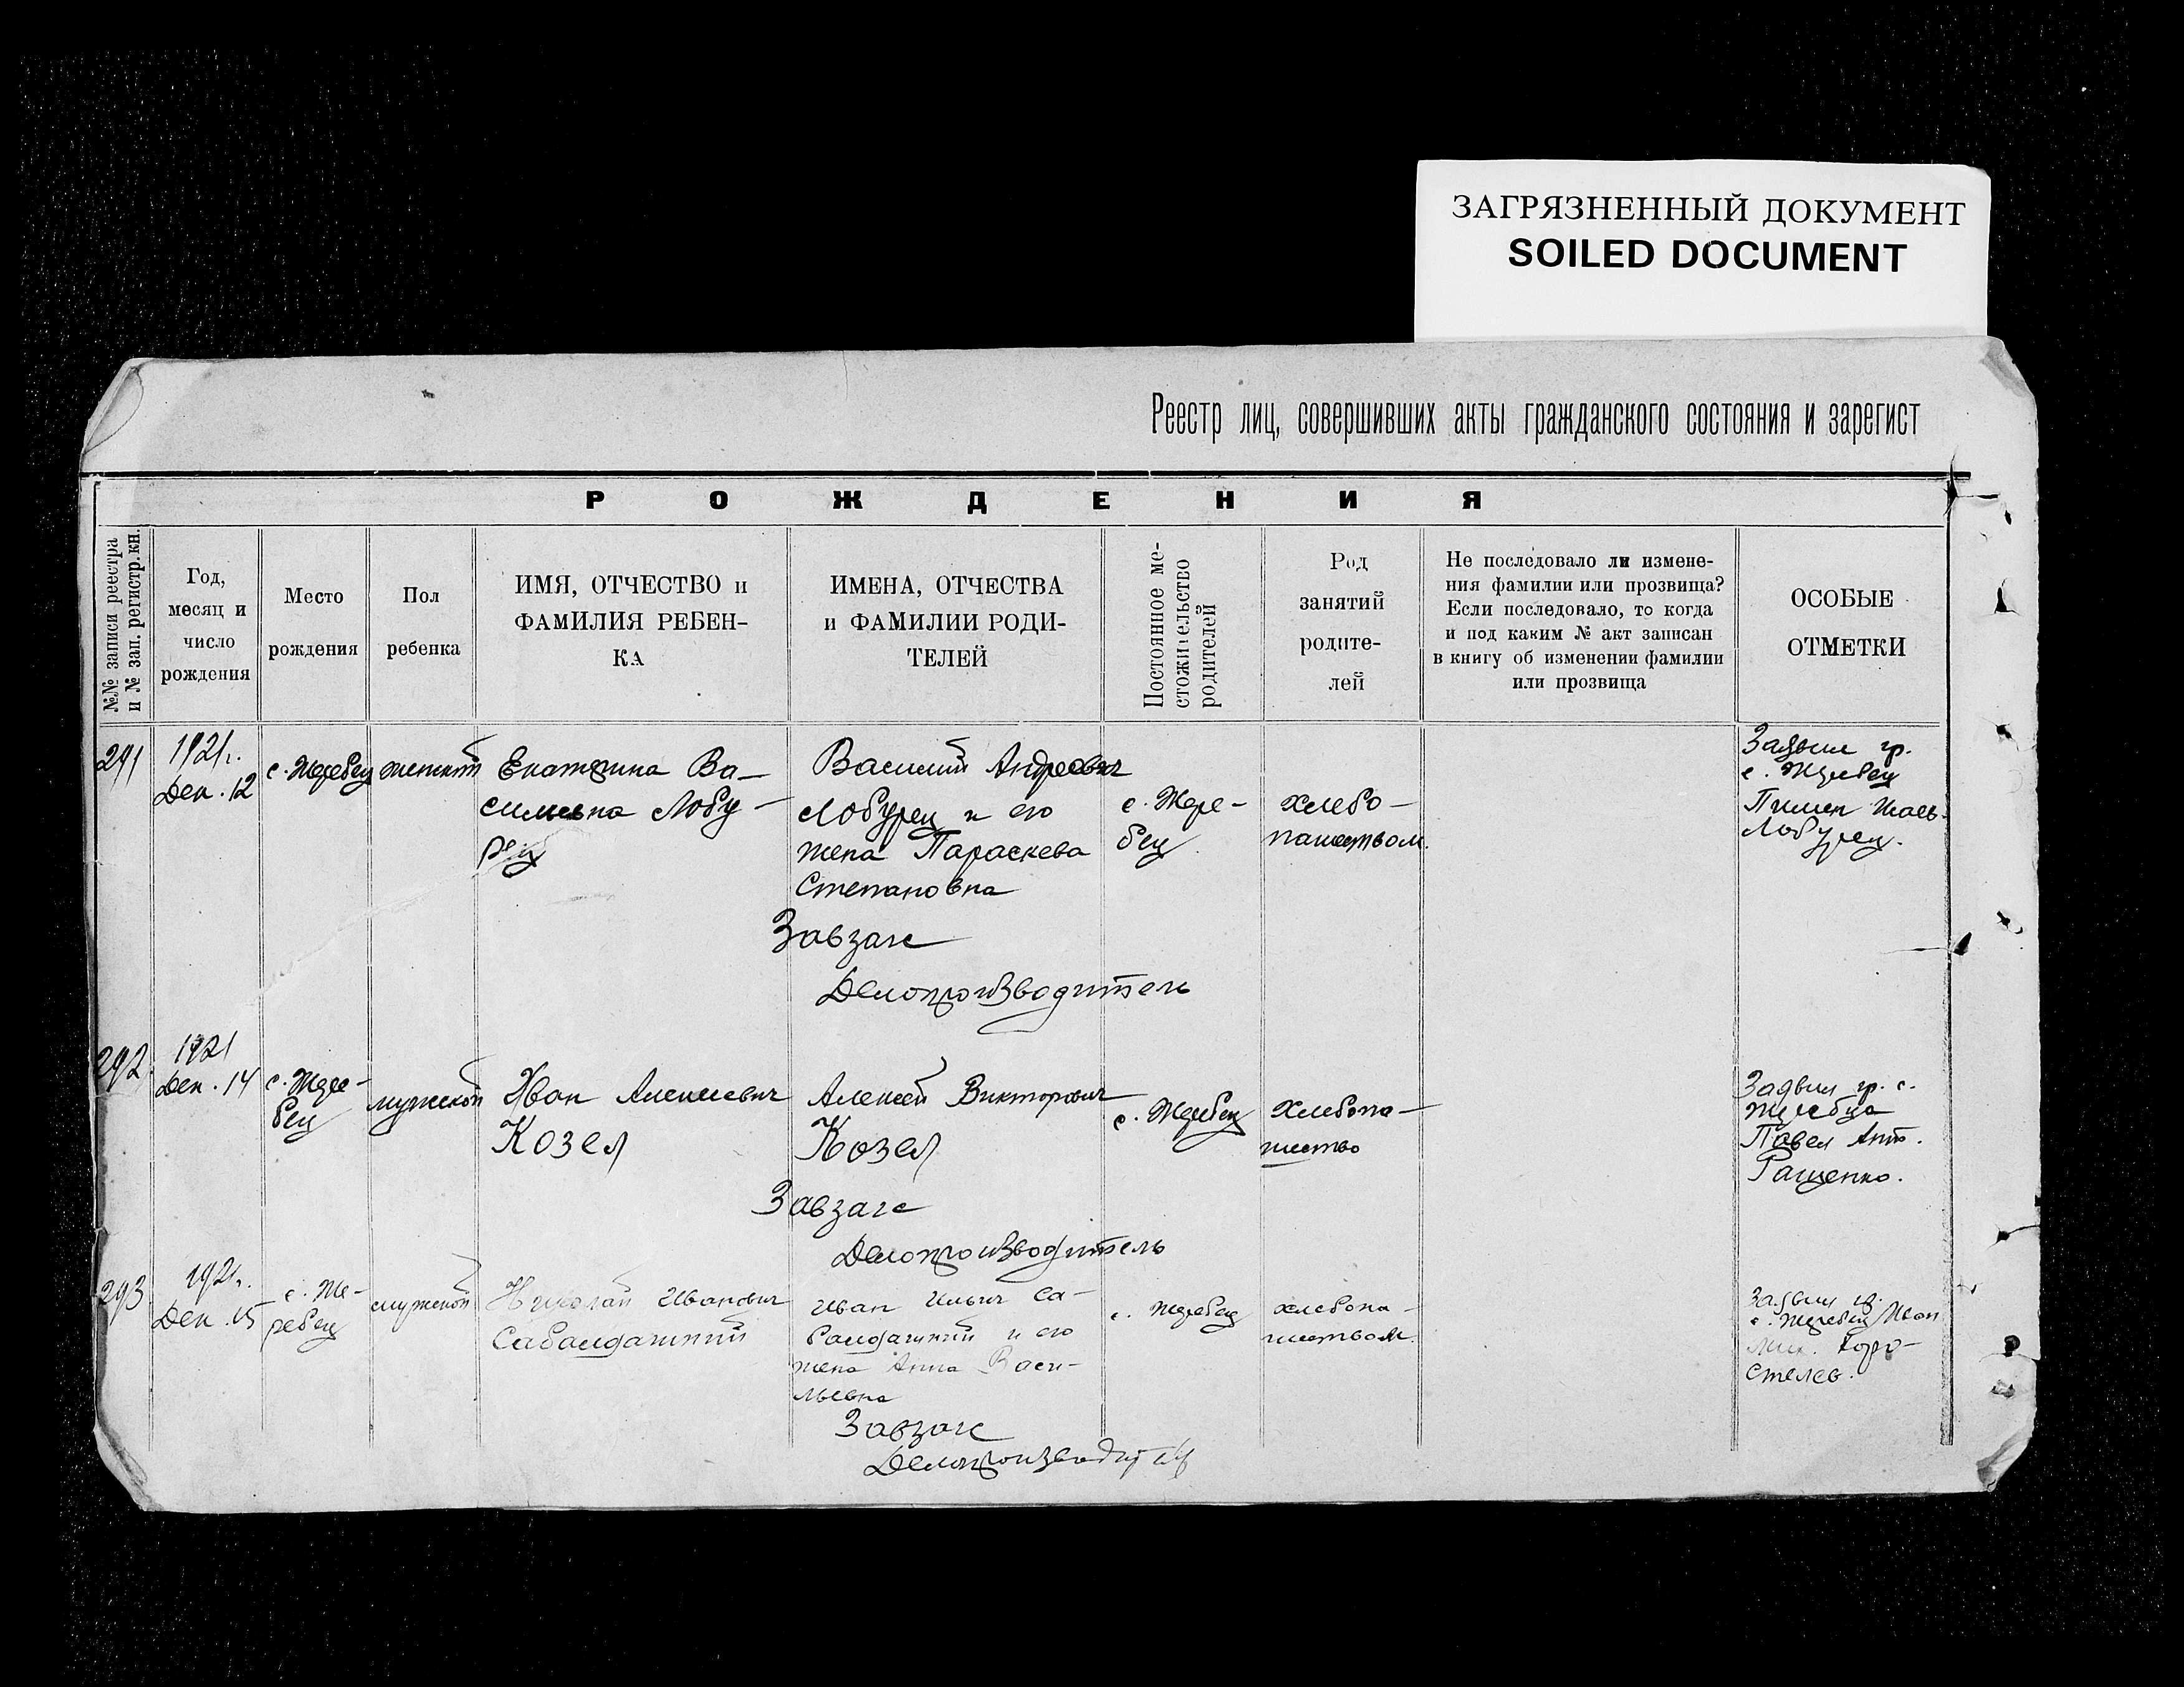 ЗАГРЯЗНЕННЫЙ ДОКУМЕНТ
SOILED DOCUMENT
Реестр лиц, совершивших акты гражданского состояния и зарегист
РОЖДЕНИЯ
№№ записи реестра
и № зап. регистр. кн.
Год,
месяц и
число
рождения
Место
рождения
Пол
ребенка
ИМЯ, ОТЧЕСТВО и
ФАМИЛИЯ РЕБЕН-
КА
ИМЕНА, ОТЧЕСТВА
и ФАМИЛИИ РОДИ-
ТЕЛЕЙ
Постоянное ме-
стожительство
родителей
Род
занятий
родите-
лей
Не последовало ли измене-
ния фамилии или прозвища?
Если последовало, то когда
и под каким № акт записан
в книгу об изменении фамилии
или прозвища
ОСОБЫЕ
ОТМЕТКИ
291
1921г.
Дек. 12
с. Жеребец
женский
Екатерина Ва-
сильевна Лобу-
рец
Василий Андреевич
Лобурец и его
жена Параскева
Степановна
с. Жере-
бец
хлебо-
пашеством.
Заявил гр.
с. Жеребец
Пимен
Лобурец.
Завзагс
Делопроизводитель
292
1921
Дек. 14
с. Жере-
бец
мужской
Иван Алексеевич
Козел
Алексей Викторович
Козел
с. Жеребец
Хлебопа-
шество
Заявил гр. с.
Жеребца
Павел Ант.
Ращенко.
Завзагс
Делопроизводитель
293
1921г.
Дек. 15
с. Же-
ребец
мужской
Николай Иванович
Сабалдашний
Иван Ильич Са-
балдашний и его
жена Анна Васи-
льевна
с. Жеребец
хлебопа-
шеством.
Заявил гр.
с. Жеребец Иван
Мих. Коро-
стелев.
Завзагс
Делопроизводитель